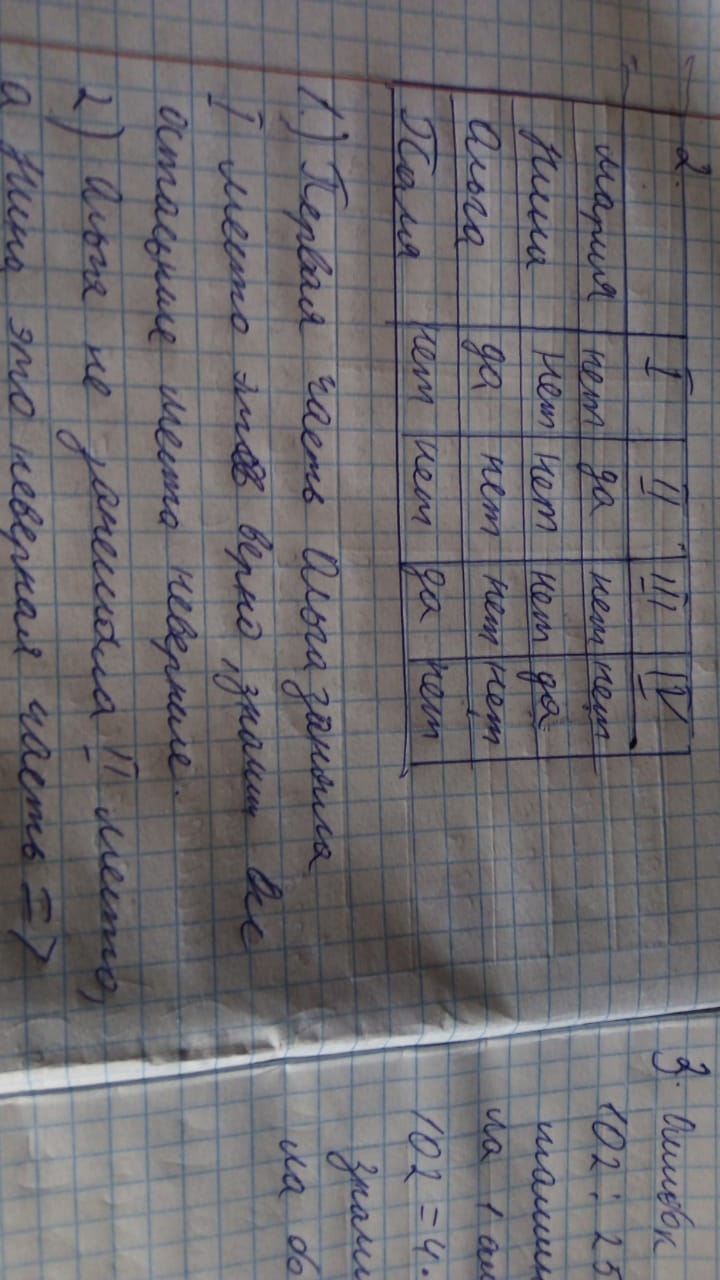 2.
I II III IV
Мария нет да нет нет
Нина нет нет нет да
Ольга да нет нет нет
Поля нет нет да нет
1.) Первая часть Ольга заняла
I место это верно, значит все
остальные места неверные.
2) Ольга не занимала II место,
а Нина это неверная часть =>
3. Ошибок
102 : 25
ла 1
102 = 4.
ла